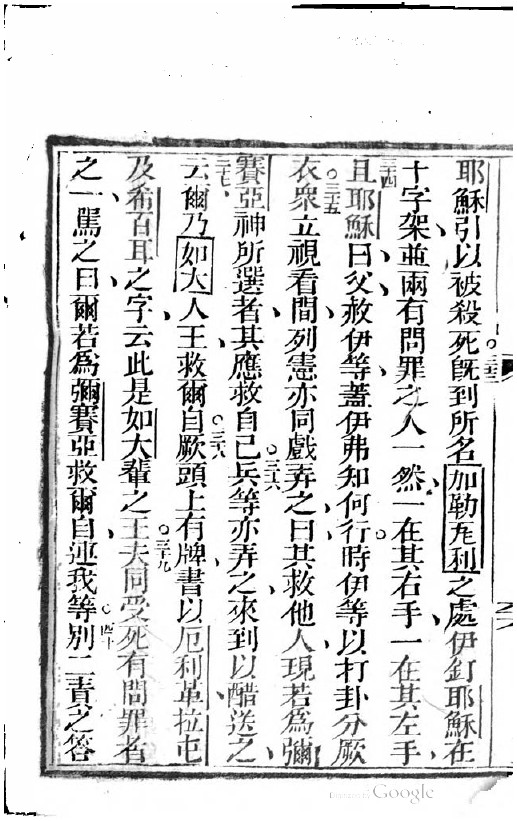 耶穌引以被殺死○三三旣到所名加勒瓦利之處伊釘耶穌在
十字架並兩有問罪之人一然一在其右手一在其左手
三四且耶穌曰父赦伊等蓋伊弗知何行時伊等以打卦分厥
衣○三五衆立視看間列憲亦同戲弄之曰其救他人現若爲彌
賽亞神所選者其應救自己○三六兵等亦弄之來到以醋送之
三七云爾乃如大人王救爾自○三八厥頭上有牌書以厄利革拉屯
及希百耳之字云此是如大輩之王○三九夫同受死有問罪者
之一罵之曰爾若爲彌賽亞救爾自運我等○四十別二責之答
Google